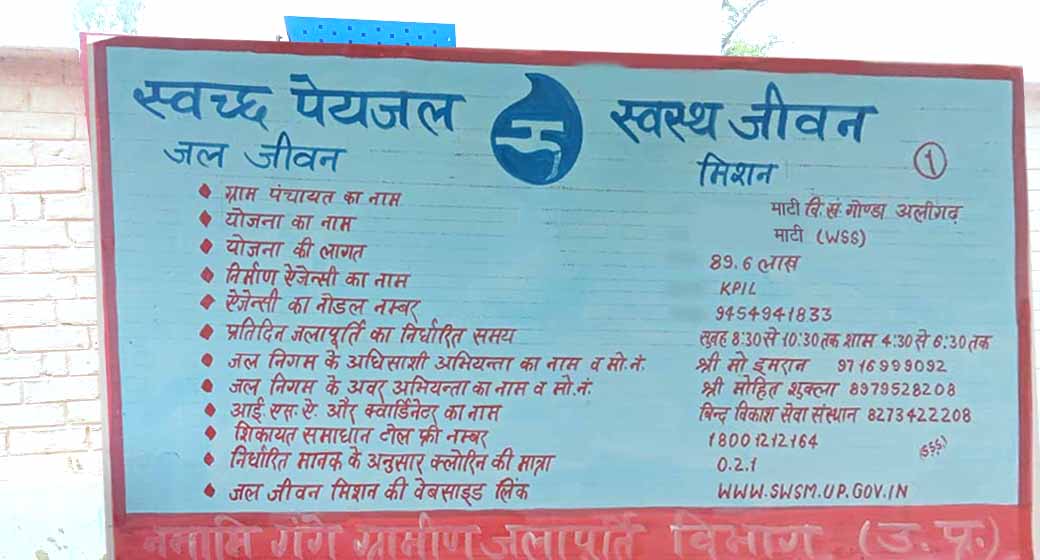 स्वच्छ पेयजल स्वस्थ जीवन
जल जीवन मिशन १
ग्राम पंचायत का नाम माटी वि.खं. गोण्डा अलीगढ़
योजना का नाम माटी (WSS)
योजना की लागत 89.6 लाख
निर्माण ऐजेन्सी का नाम KPIL
ऐजेन्सी का नोडल नम्बर 9454941833
प्रतिदिन जलापूर्ति का निर्धारित समय सुबह 8:30 से 10:30 तक शाम 4:30 से 6:30 तक
जल निगम के अधिसाशी अभियन्ता का नाम व मो.नं. श्री मो इमरान 9716999092
जल निगम के अवर अभियन्ता का नाम व मो.नं. श्री मोहित शुक्ला 8979528208
आई.एस.ऐ. और क्वार्डिनेटर का नाम बिन्द विकाश सेवा संस्थान 8273422208
शिकायत समाधान टोल फ्री नम्बर 18001212164
निर्धारित मानक के अनुसार क्लोरिन की मात्रा 0.2.1
जल जीवन मिशन की वेबसाइड लिंक WWW.SWSM.UP.GOV.IN
नमामि गंगे ग्रामीण जलापूर्ति विभाग (उ.प्र.)